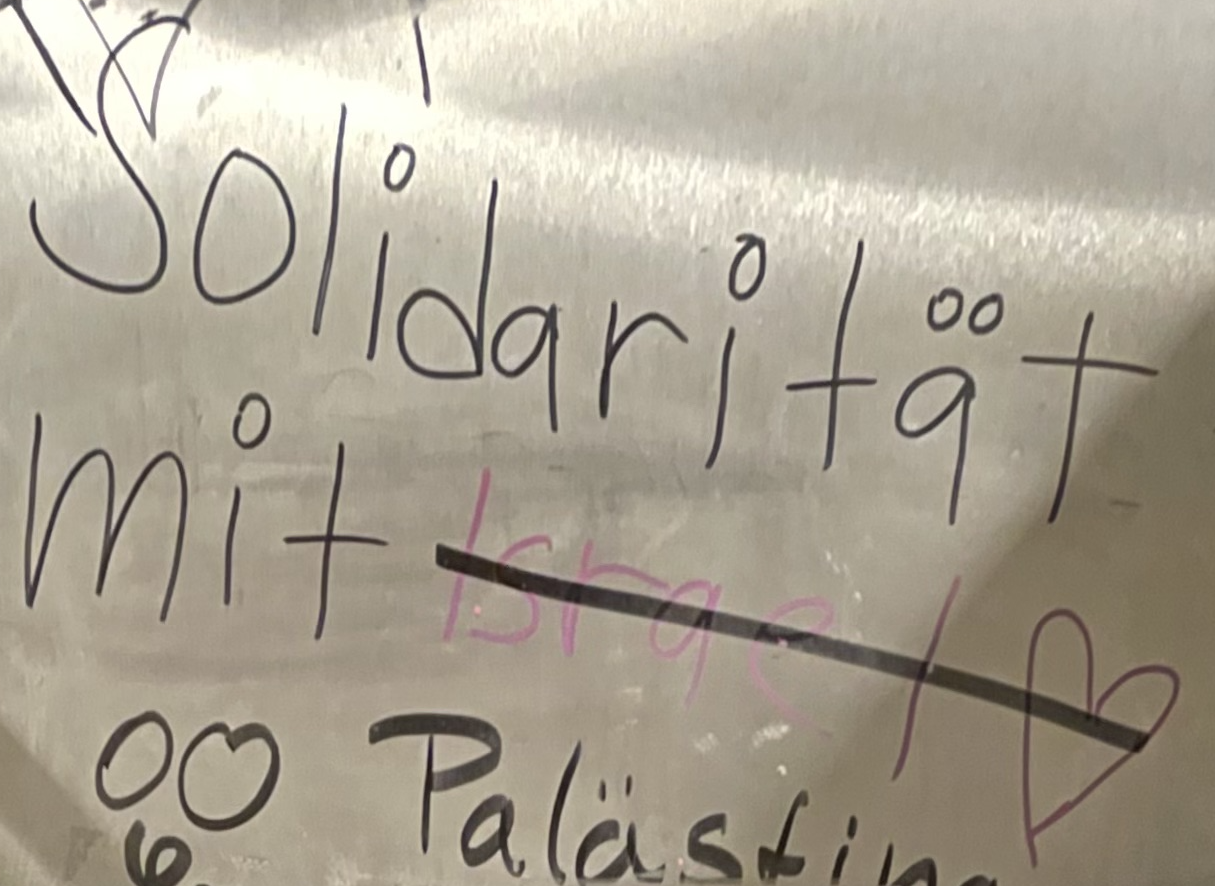 Solidarität
mit Israel
Palästina